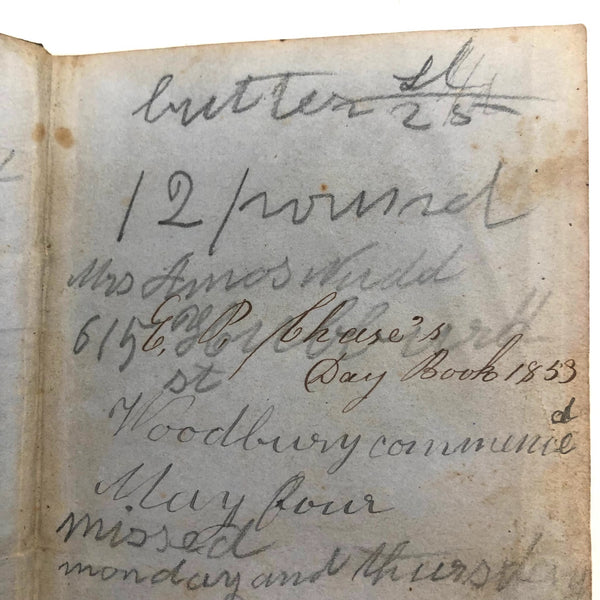 butter
25
12 pound
Mrs Amos Nudd
615 Hubbard
E. P. Chase's
st
Day Book 1853
Woodbury commenced
May four
missed
monday and thursday